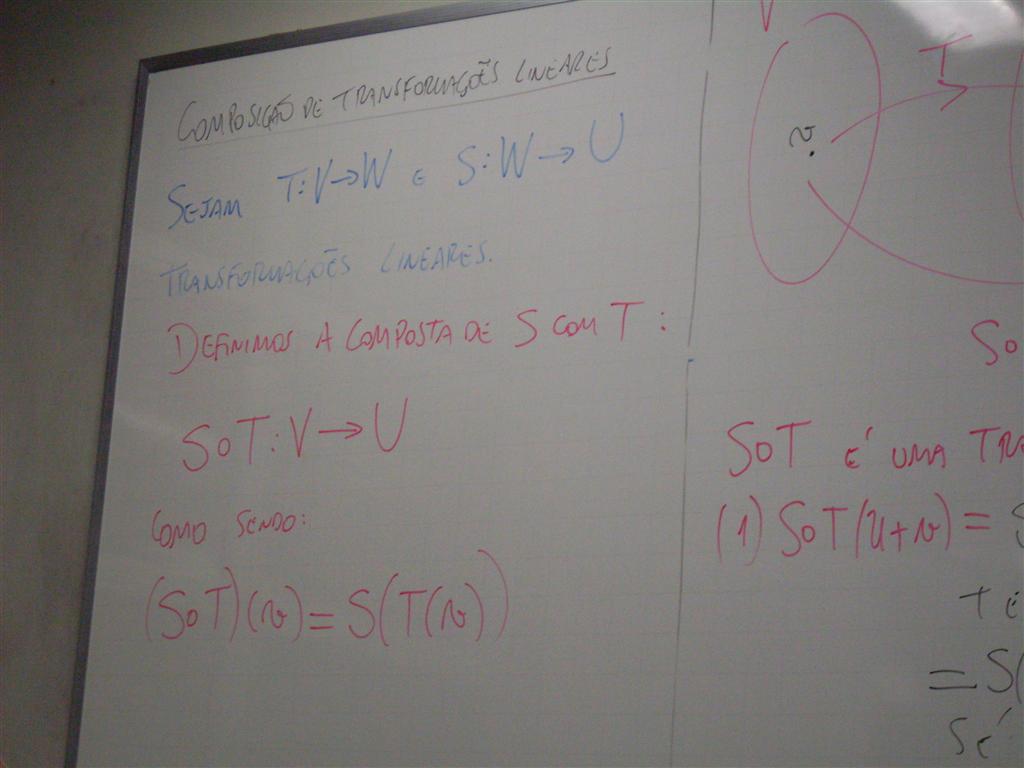 COMPOSIÇÃO DE TRANSFORMAÇÕES LINEARES
SEJAM T:V→W E S:W→U
TRANSFORMAÇÕES LINEARES.
DEFINIMOS A COMPOSTA DE S COM T:
SoT:V→U
COMO SENDO:
(SoT)(v)=S(T(v))
V
T
v
So
SoT É UMA TRA
(1) SoT(u+v)= S
T É
=S(
S É